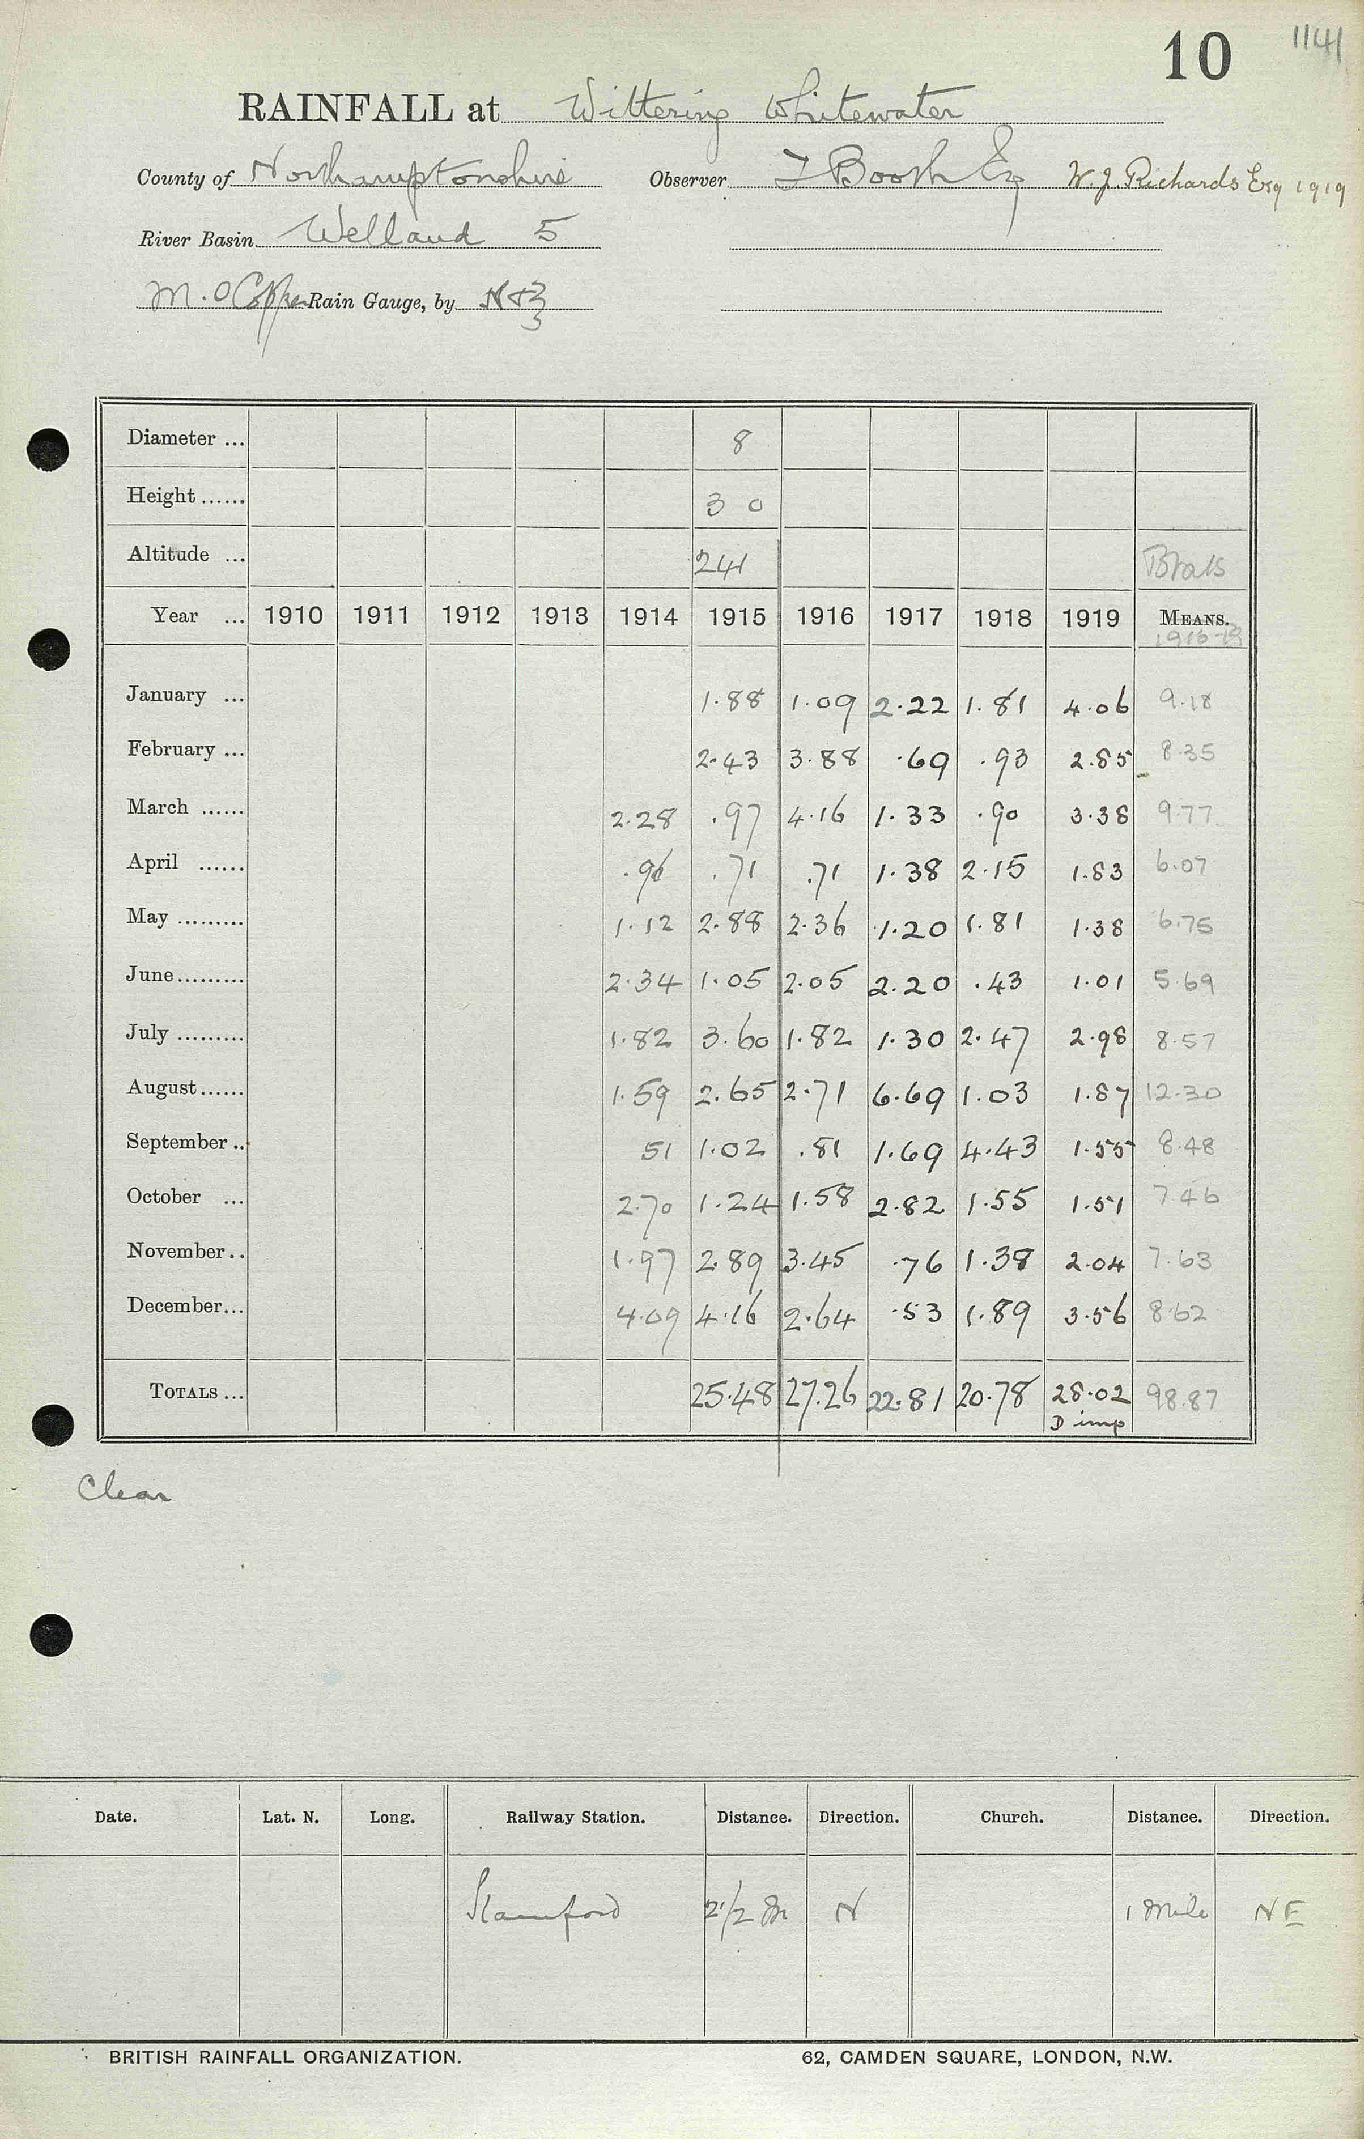 10 1141
RAINFALL at Wittering Whitewater
County of Northamptonshire Observer T Booth Esq W. J. Richards Esq 1919
River Basin Welland 5
M.O Copper Rain Gauge, by
Diameter ... 8
Height ...... 3 0
Altitude ... 241 Totals
Year ... 1910 1911 1912 1913 1914 1915 1916 1917 1918 1919 MEANS.
1916-19
January ... 1.88 1.09 2.22 1.81 4.06 9.18
February ... 2.43 3.88 .69 .93 2.85 8.35
March ...... 2.28 .97 4.16 1.33 .90 3.38 9.77
April ...... .96 .71 .71 1.38 2.15 1.83 6.07
May ......... 1.12 2.88 2.36 1.20 1.81 1.38 6.75
June......... 2.34 1.05 2.05 2.20 .43 1.01 5.69
July ......... 1.82 3.60 1.82 1.30 2.47 2.98 8.57
August...... 1.59 2.65 2.71 6.69 1.03 1.87 12.30
September .. 51 1.02 .81 1.69 4.43 1.55 8.48
October ... 2.70 1.24 1.58 2.82 1.55 1.51 7.46
November .. 1.97 2.89 3.45 .76 1.38 2.04 7.63
December... 4.09 4.16 2.64 .53 1.89 3.56 8.62
TOTALS ... 25.48 27.26 22.81 20.78 28.02 98.87
D imp
Clear
Date. Lat. N. Long. Railway Station. Distance. Direction. Church. Distance. Direction.
Stamford 2 1/2 M N 1 Mile NE
BRITISH RAINFALL ORGANIZATION. 62, CAMDEN SQUARE, LONDON, N.W.